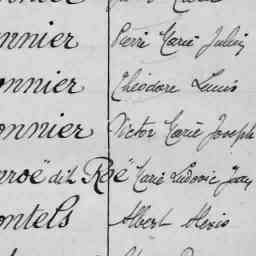 onnier Pierre Marie Julien
onnier Théodore Louis
onnier Victor Marie Joseph
nroë dit Roë Marie Ludovic Jean
ontels Albert Alexis